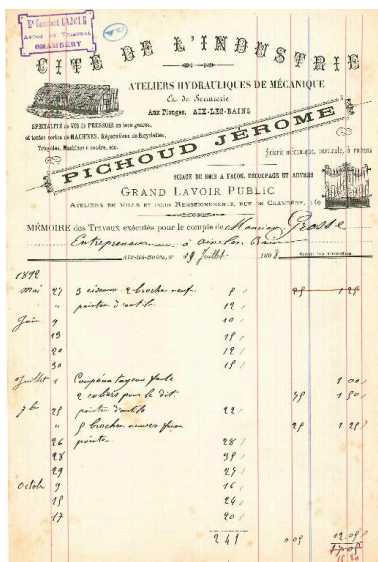 Constant LAJOUE
CHAMBÉRY
CITÉ DE L'INDUSTRIE
ATELIERS HYDRAULIQUES DE MÉCANIQUE
Et de Serrurerie
Aux Plonges, AIX-LES-BAINS
SPÉCIALITÉ DE VIS DE PRESSOIR en tous genres,
et toutes sortes de MACHINES, Réparations de Bicyclettes,
Tricycles, Machines à coudre, etc.
PICHOUD JÉROME
Scierie mécanique, verticale, à rubans
SCIAGE DE BOIS A FAÇON, DÉCOUPAGE ET AUTRES
GRAND LAVOIR PUBLIC
ATELIERS EN VILLE ET POUR RENSEIGNEMENTS, RUE DE CHAMBÉRY,
MÉMOIRE des Travaux exécutés pour le compte de Monsieur Grosse
Entrepreneur à Aix les Bains
Aix-les-Bains, le 29 Juillet 189
1892
Mai 27 3 ciseaux 2 broche neuf 8 / 25 1 25
" pointes d'outils 12 /
Juin 9 10 /
13 15 /
20 12 /
30 15 /
Juillet 1 1 00
2 colliers pour le dit 75 1 50
7bre 25 pointes d'outils 22 /
" 5 broches neuves 25 1 25
26 pointes 28 /
28 35 /
29 27 /
Octob 9 16 /
15 24 /
17 20 /
241 0 05 12.05
17 05